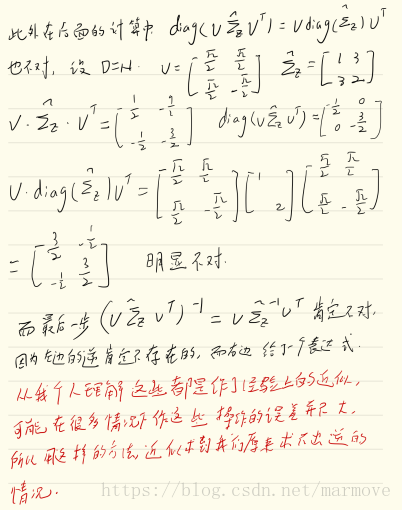 此外在后面的计算中 diag(U Σ̂_z U^T) = U diag(Σ̂_z) U^T
也不对, 设 D=N. U = [-√2/2 √2/2; √2/2 -√2/2] Σ̂_z = [1 3; 3 2]
U·Σ̂_z·U^T = [-1/2 -9/2; -1/2 -3/2] diag(UΣ̂_z U^T) = [-1/2 0; 0 -3/2]
U·diag(Σ̂_z)U^T = [-√2/2 √2/2; √2/2 -√2/2][1 2][-√2/2 √2/2; √2/2 -√2/2]
= [-3/2 -1/2; -1/2 3/2] 明显不对.
而最后一步 (U Σ̂_z U^T)^-1 = U Σ̂_z^-1 U^T 肯定不对,
因为左边的逆肯定不存在的, 而右边给了个表达式.
从我个人理解 这些都是作了经验上的近似,
可能在很多情况下作这些操作的误差并不大,
所以用这样的方法近似求到我们原来求不出逆的
情况.
https://blog.csdn.net/marmove